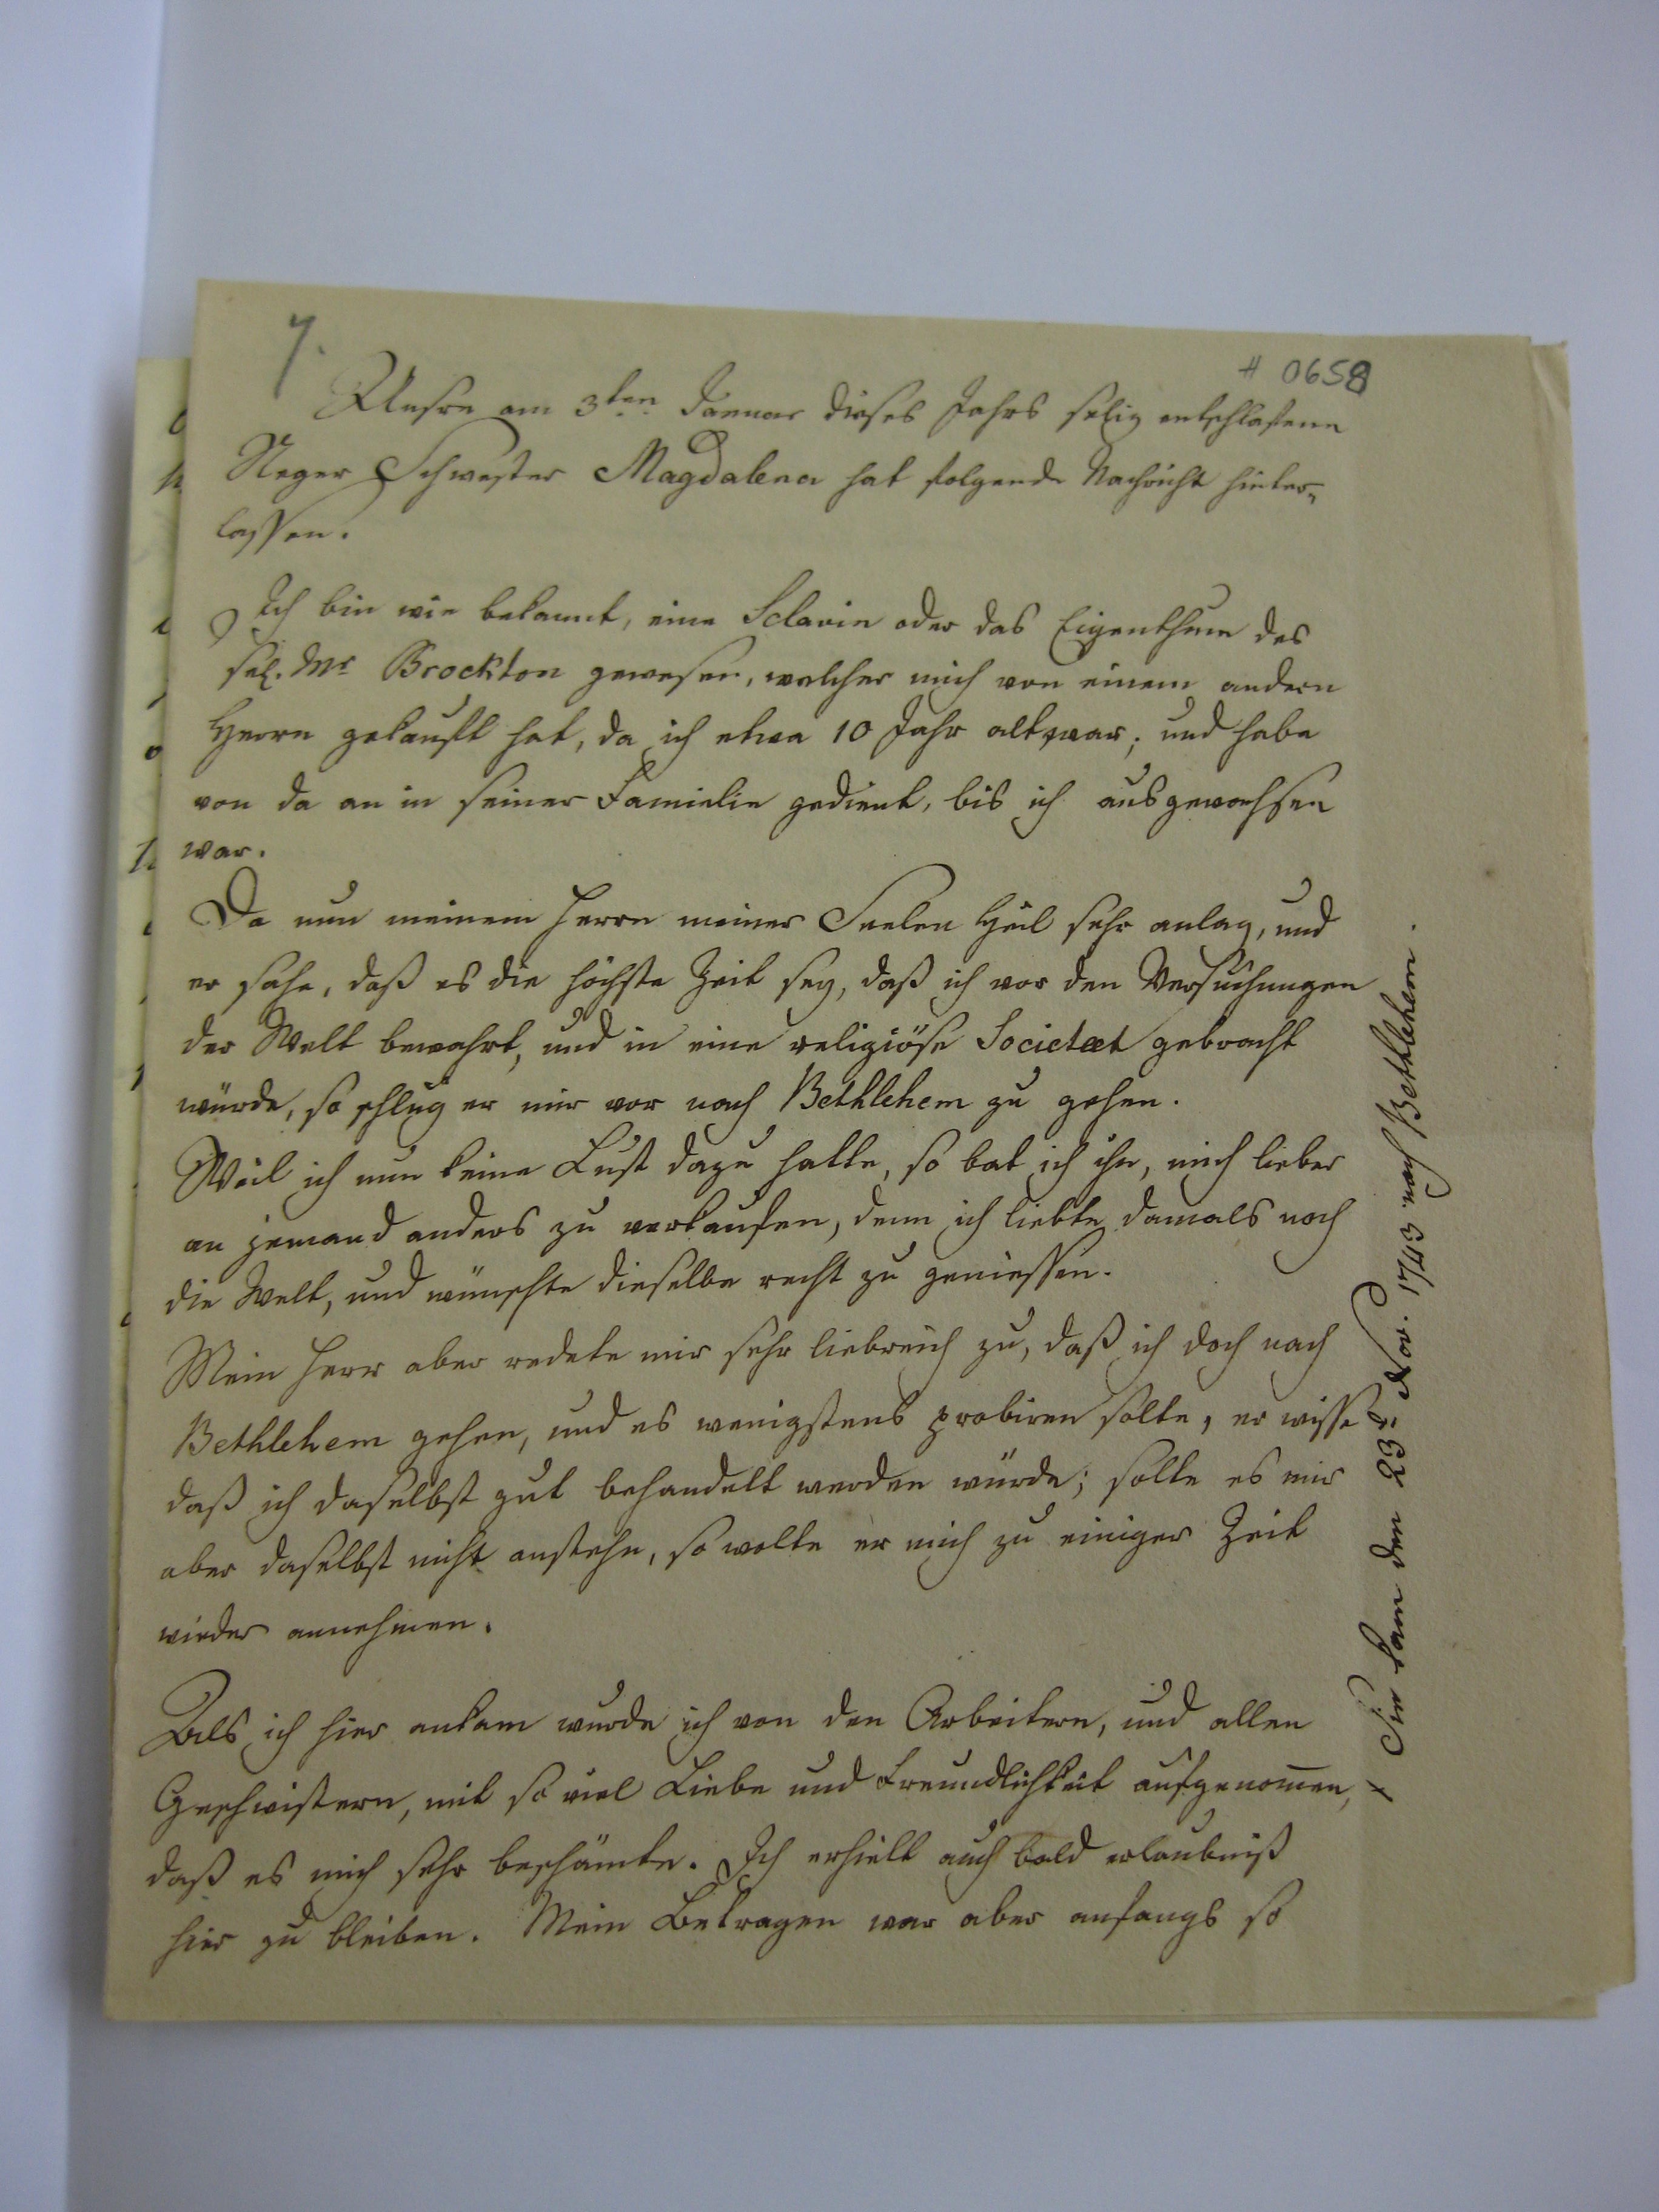 7.
# 0658
Unsre am 3ten Januar dieses Jahrs selig entschlafene
Neger Schwester Magdalena hat folgende Nachricht hinter„
lassen.
Ich bin wie bekannt, eine Sclavin oder das Eigenthum des
sel. Mr Brockton gewesen, welcher mich von einem andern
Herrn gekauft hat, da ich etwa 10 Jahr alt war; und habe
von da an in seiner Familie gedient, bis ich ausgewachsen
war.
Da nun meinem Herrn meiner Seelen Heil sehr anlag, und
er sahe, daß es die höchste Zeit sey, daß ich vor den Versuchungen
der Welt bewahrt, und in eine religiöse Societæt gebracht
würde, so schlug er mir vor nach Bethlehem zu gehen.
Weil ich nun keine Lust dazu hatte, so bat ich ihn, mich lieber
an jemand anders zu verkaufen, denn ich liebte damals noch
die Welt, und wünschte dieselbe recht zu geniessen.
Mein Herr aber redete mir sehr liebreich zu, daß ich doch nach
Bethlehem gehen, und es wenigstens probiren solte, er wisse
daß ich daselbst gut behandelt werden würde; solte es mir
aber daselbst nicht anstehn, so wolte er mich zu einiger Zeit
wieder annehmen.
Als ich hier ankam wurde ich von den Arbeitern, und allen
Geschwistern, mit so viel Liebe und Freundlichkeit aufgenom̅en,
daß es mich sehr beschämte. Ich erhielt auch bald erlaubniß
hier zu bleiben. Mein Betragen war aber anfangs so
+ Sie kam den 23t Nov. 1743 nach Bethlehem.